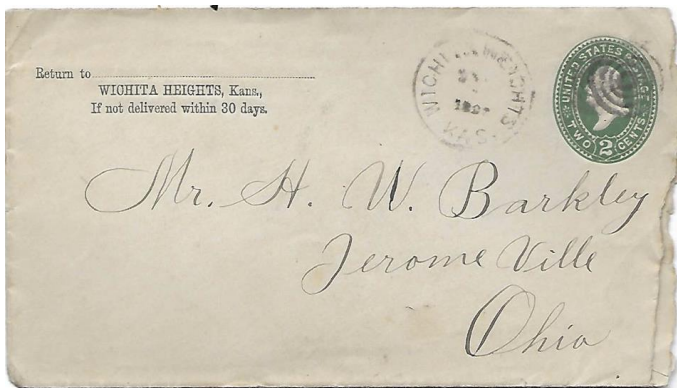 Return to
WICHITA HEIGHTS, Kans.,
If not delivered within 30 days.
WICHI HEIGHTS
KAS.
UNITED STATES
TWO 2 CENTS
Mr. H. W. Barkley
Jerome Ville
Ohio